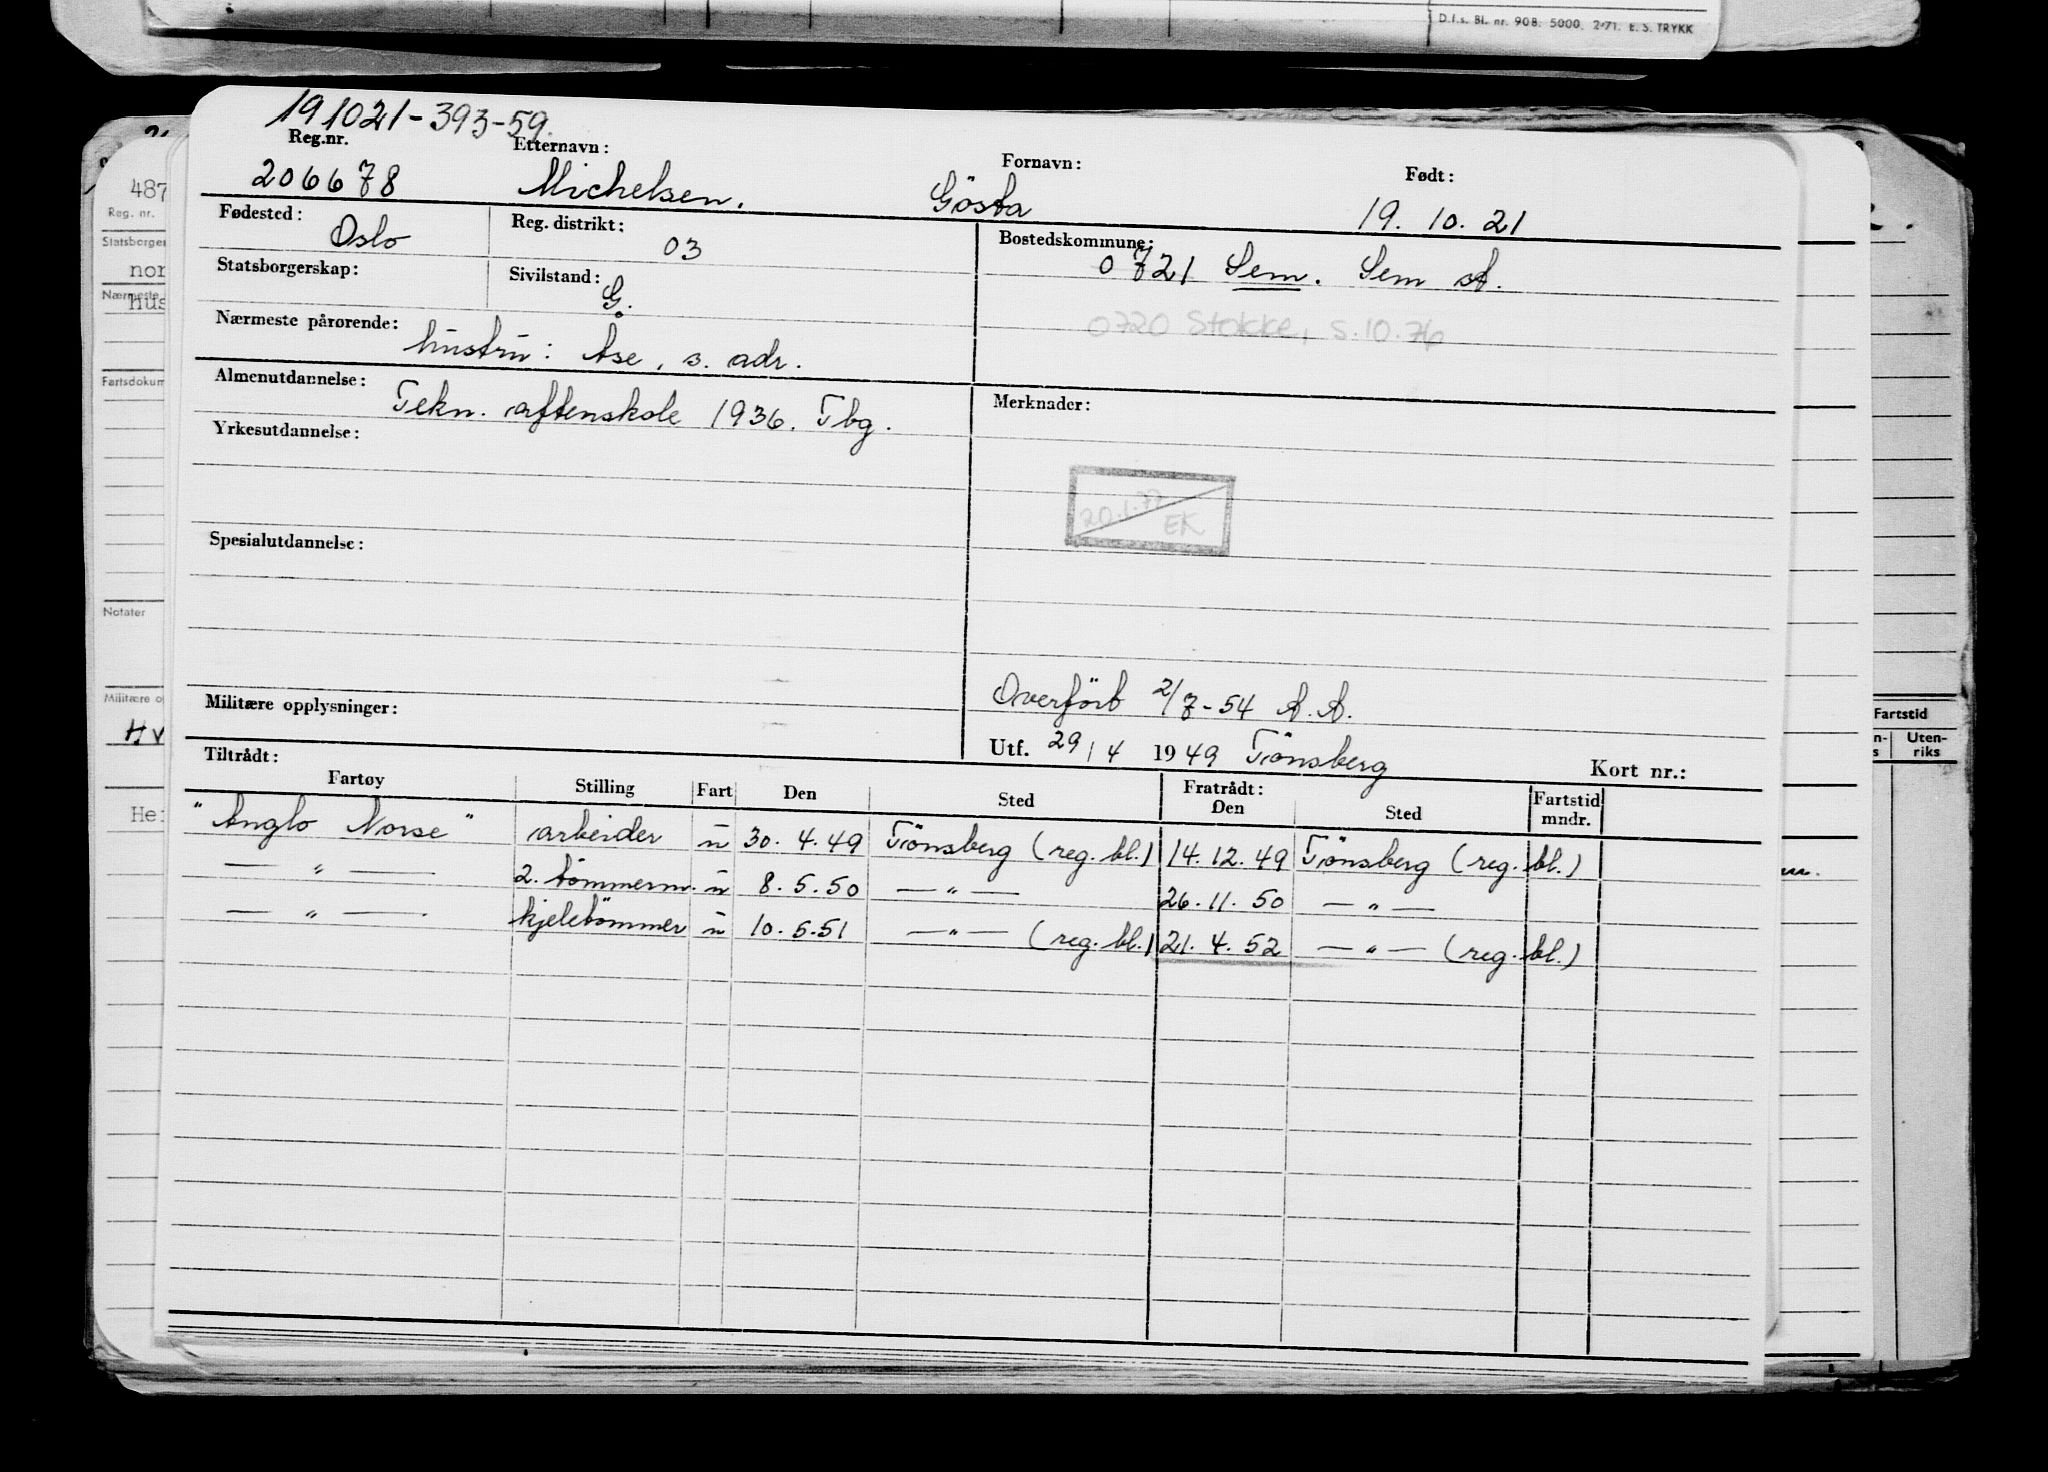 D.f.s. Bl. nr. 908. 5000. 2-71. E. S. TRYKK
191021-393-59.
Reg.nr. Etternavn: Fornavn: Født:
206678 Michelsen. Gösta 19. 10. 21
Fødested: Oslo Reg. distrikt: 03 Bostedskommune: 0721 Sem. Sem st.
Statsborgerskap: Sivilstand: G.
0720 Stokke, s. 10. 76
Nærmeste pårørende: hustru: Åse, s. adr.
Almenutdannelse: Tekn. aftenskole 1936. Tbg. Merknader:
Yrkesutdannelse:
20.1.77 EK
Spesialutdannelse:
Overfört 2/7-54 A.A.
Militære opplysninger:
Utf. 29/4 1949 Tönsberg Kort nr.:
Tiltrådt: Fratrådt:
Fartøy Stilling Fart Den Sted Den Sted Fartstid mndr.
"Anglo Norse" arbeider u 30. 4. 49 Tönsberg (reg. bl.) 14. 12. 49 Tönsberg (reg. bl.)
— " — 2. tömmerm. u 8. 5. 50 — " — 26. 11. 50 — " —
— " — kjeletömmer u 10. 5. 51 — " — (reg. bl.) 21. 4. 52 — " — (reg. bl.)
487
Reg. nr.
Statsborger
nor
Nærmeste
hus
Fartsdokum
Notater
Militære o
Hv
He
Fartstid
Uten-
riks